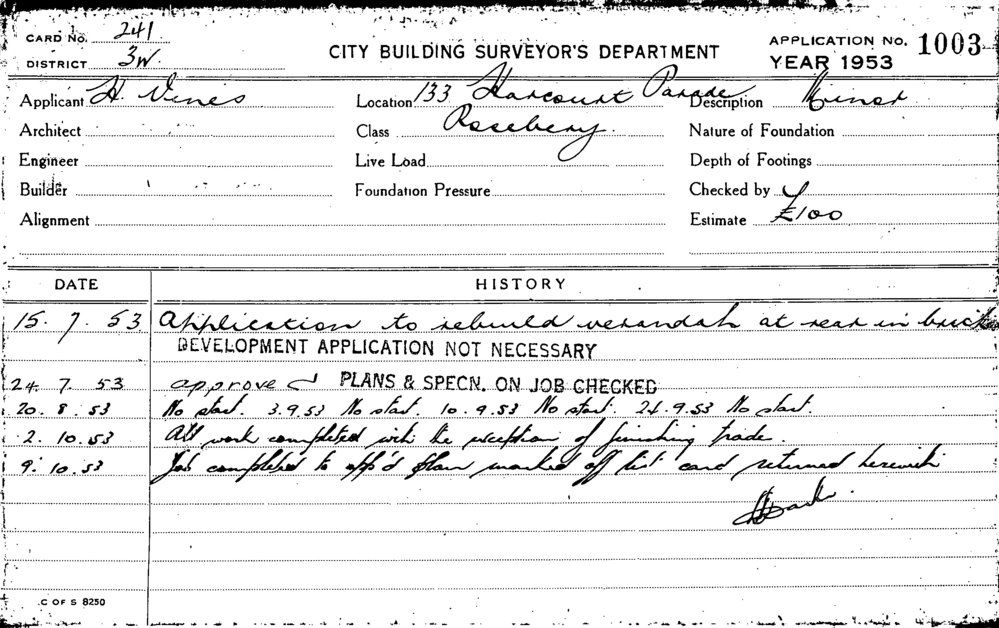 CARD No. 241
DISTRICT 3W.
CITY BUILDING SURVEYOR'S DEPARTMENT
APPLICATION No. 1003
YEAR 1953
Applicant H. Vines
Location 133 Harcourt Parade
Description Minor
Architect
Class Rosebery.
Nature of Foundation
Engineer
Live Load
Depth of Footings
Builder
Foundation Pressure
Checked by
Alignment
Estimate £100
DATE HISTORY
15. 7. 53 Application to rebuild verandah at rear in brick
DEVELOPMENT APPLICATION NOT NECESSARY
24. 7. 53 approved PLANS & SPECN. ON JOB CHECKED
20. 8. 53 No start. 3.9.53 No start. 10.9.53 No start. 24.9.53 No start.
2. 10. 53 All work completed with the exception of finishing trade.
9. 10. 53 Job completed to app'd plan marked off list card returned herewith
C OF S 8250